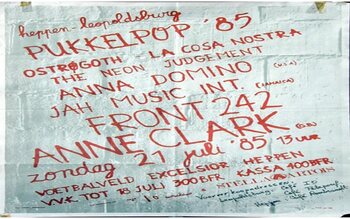 heppen leopoldsburg
PUKKELPOP '85
OSTROGOTH LA COSA NOSTRA
THE NEON JUDGEMENT
ANNA DOMINO (U.S.A)
JAH MUSIC INT. (JAMAICA)
FRONT 242
ANNE CLARK (G.B)
zondag 21 juli '85 13 uur
VOETBALVELD EXCELSIOR HEPPEN
VVK TOT 18 JULI 300 BFR KASSA 400 BFR